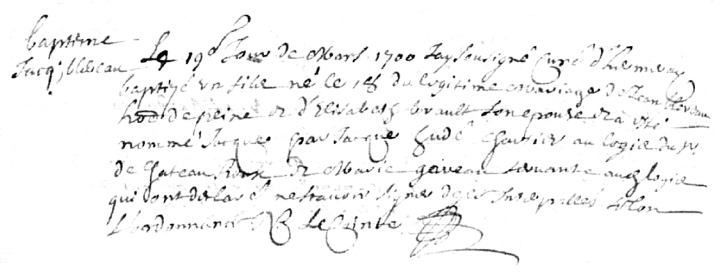 baptéme
Jacq; blereau
Le 19e Jour de Mars 1700 Jay Sousigné Curé d'
baptizé un filz né le 18 du legitime mariage de Jean
hoe de peine & d'Elisabeth brault son epouse & à esté
nommé Jacques par Jacque hudé au logie du Sr.
de Chateau & Marie gaveau servante audt logie
qui ont declaré ne scavoir signer de ce Interpellés selon
L'ordonnance LeCointe